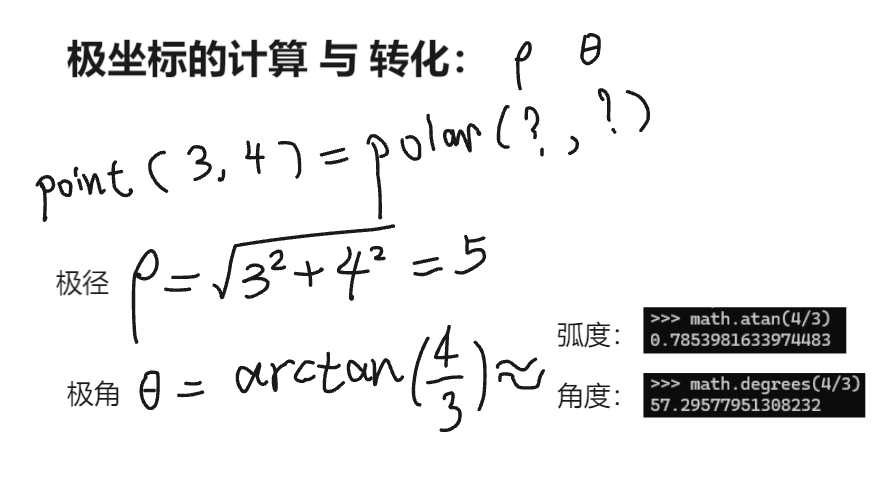 极坐标的计算 与 转化： ρ θ
point (3,4) = polar(?,?)
极径 ρ = √3²+4² = 5
极角 θ = arctan(4/3) ≈
弧度：
>>> math.atan(4/3)
0.7853981633974483
角度：
>>> math.degrees(4/3)
57.29577951308232